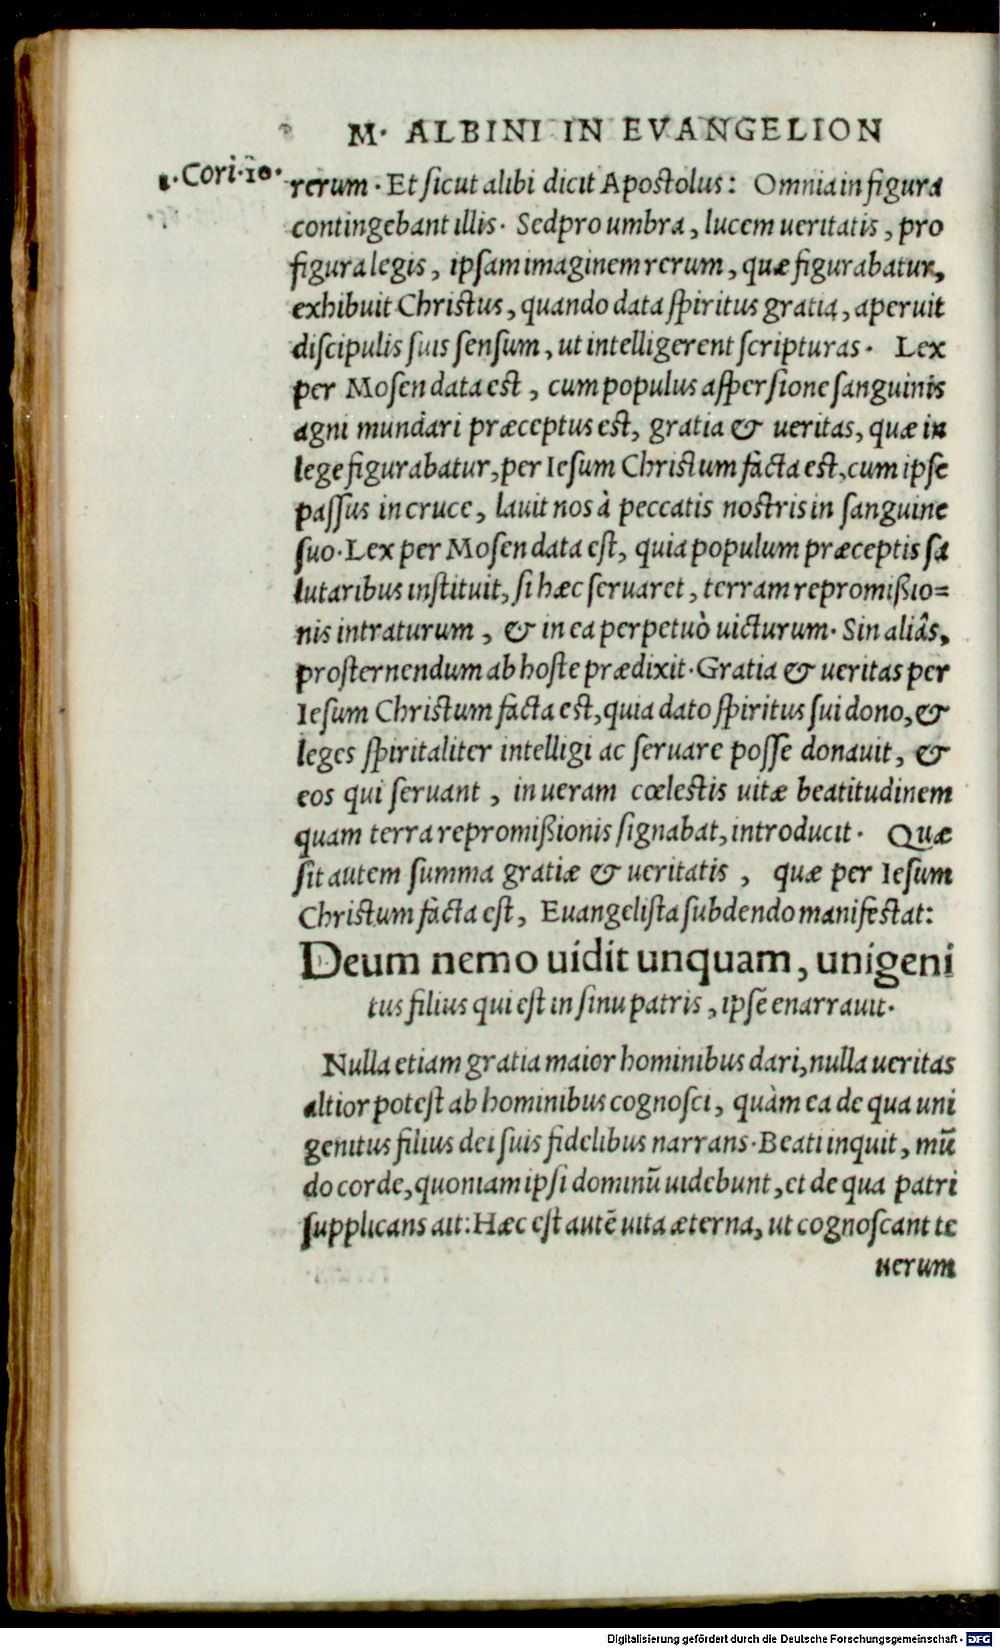 M. ALBINI IN EVANGELION
1. Cori. 10.
rerum. Et sicut alibi dicit Apostolus: Omnia in figura
contingebant illis. Sed pro umbra, lucem ueritatis, pro
figura legis, ipsam imaginem rerum, quæ figurabatur,
exhibuit Christus, quando data spiritus gratia, aperuit
discipulis suis sensum, ut intelligerent scripturas. Lex
per Mosen data est, cum populus aspersione sanguinis
agni mundari præceptus est, gratia & ueritas, quæ in
lege figurabatur, per Iesum Christum facta est, cum ipse
passus in cruce, lauit nos à peccatis nostris in sanguine
suo. Lex per Mosen data est, quia populum præceptis sa
lutaribus instituit, si hæc seruaret, terram repromißio=
nis intraturum, & in ea perpetuò uicturum. Sin aliâs,
prosternendum ab hoste prædixit. Gratia & ueritas per
Iesum Christum facta est, quia dato spiritus sui dono, &
leges spiritaliter intelligi ac seruare posse donauit, &
eos qui seruant, in ueram cœlestis uitæ beatitudinem
quam terra repromißionis signabat, introducit. Quæ
sit autem summa gratiæ & ueritatis, quæ per Iesum
Christum facta est, Euangelista subdendo manifestat:
Deum nemo uidit unquam, unigeni
tus filius qui est in sinu patris, ipsē enarrauit.
Nulla etiam gratia maior hominibus dari, nulla ueritas
altior potest ab hominibus cognosci, quàm ea de qua uni
genitus filius dei suis fidelibus narrans. Beati inquit, mū
do corde, quoniam ipsi dominū uidebunt, et de qua patri
supplicans ait: Hæc est autē uita æterna, ut cognoscant te
uerum
Digitalisierung gefördert durch die Deutsche Forschungsgemeinschaft - DFG